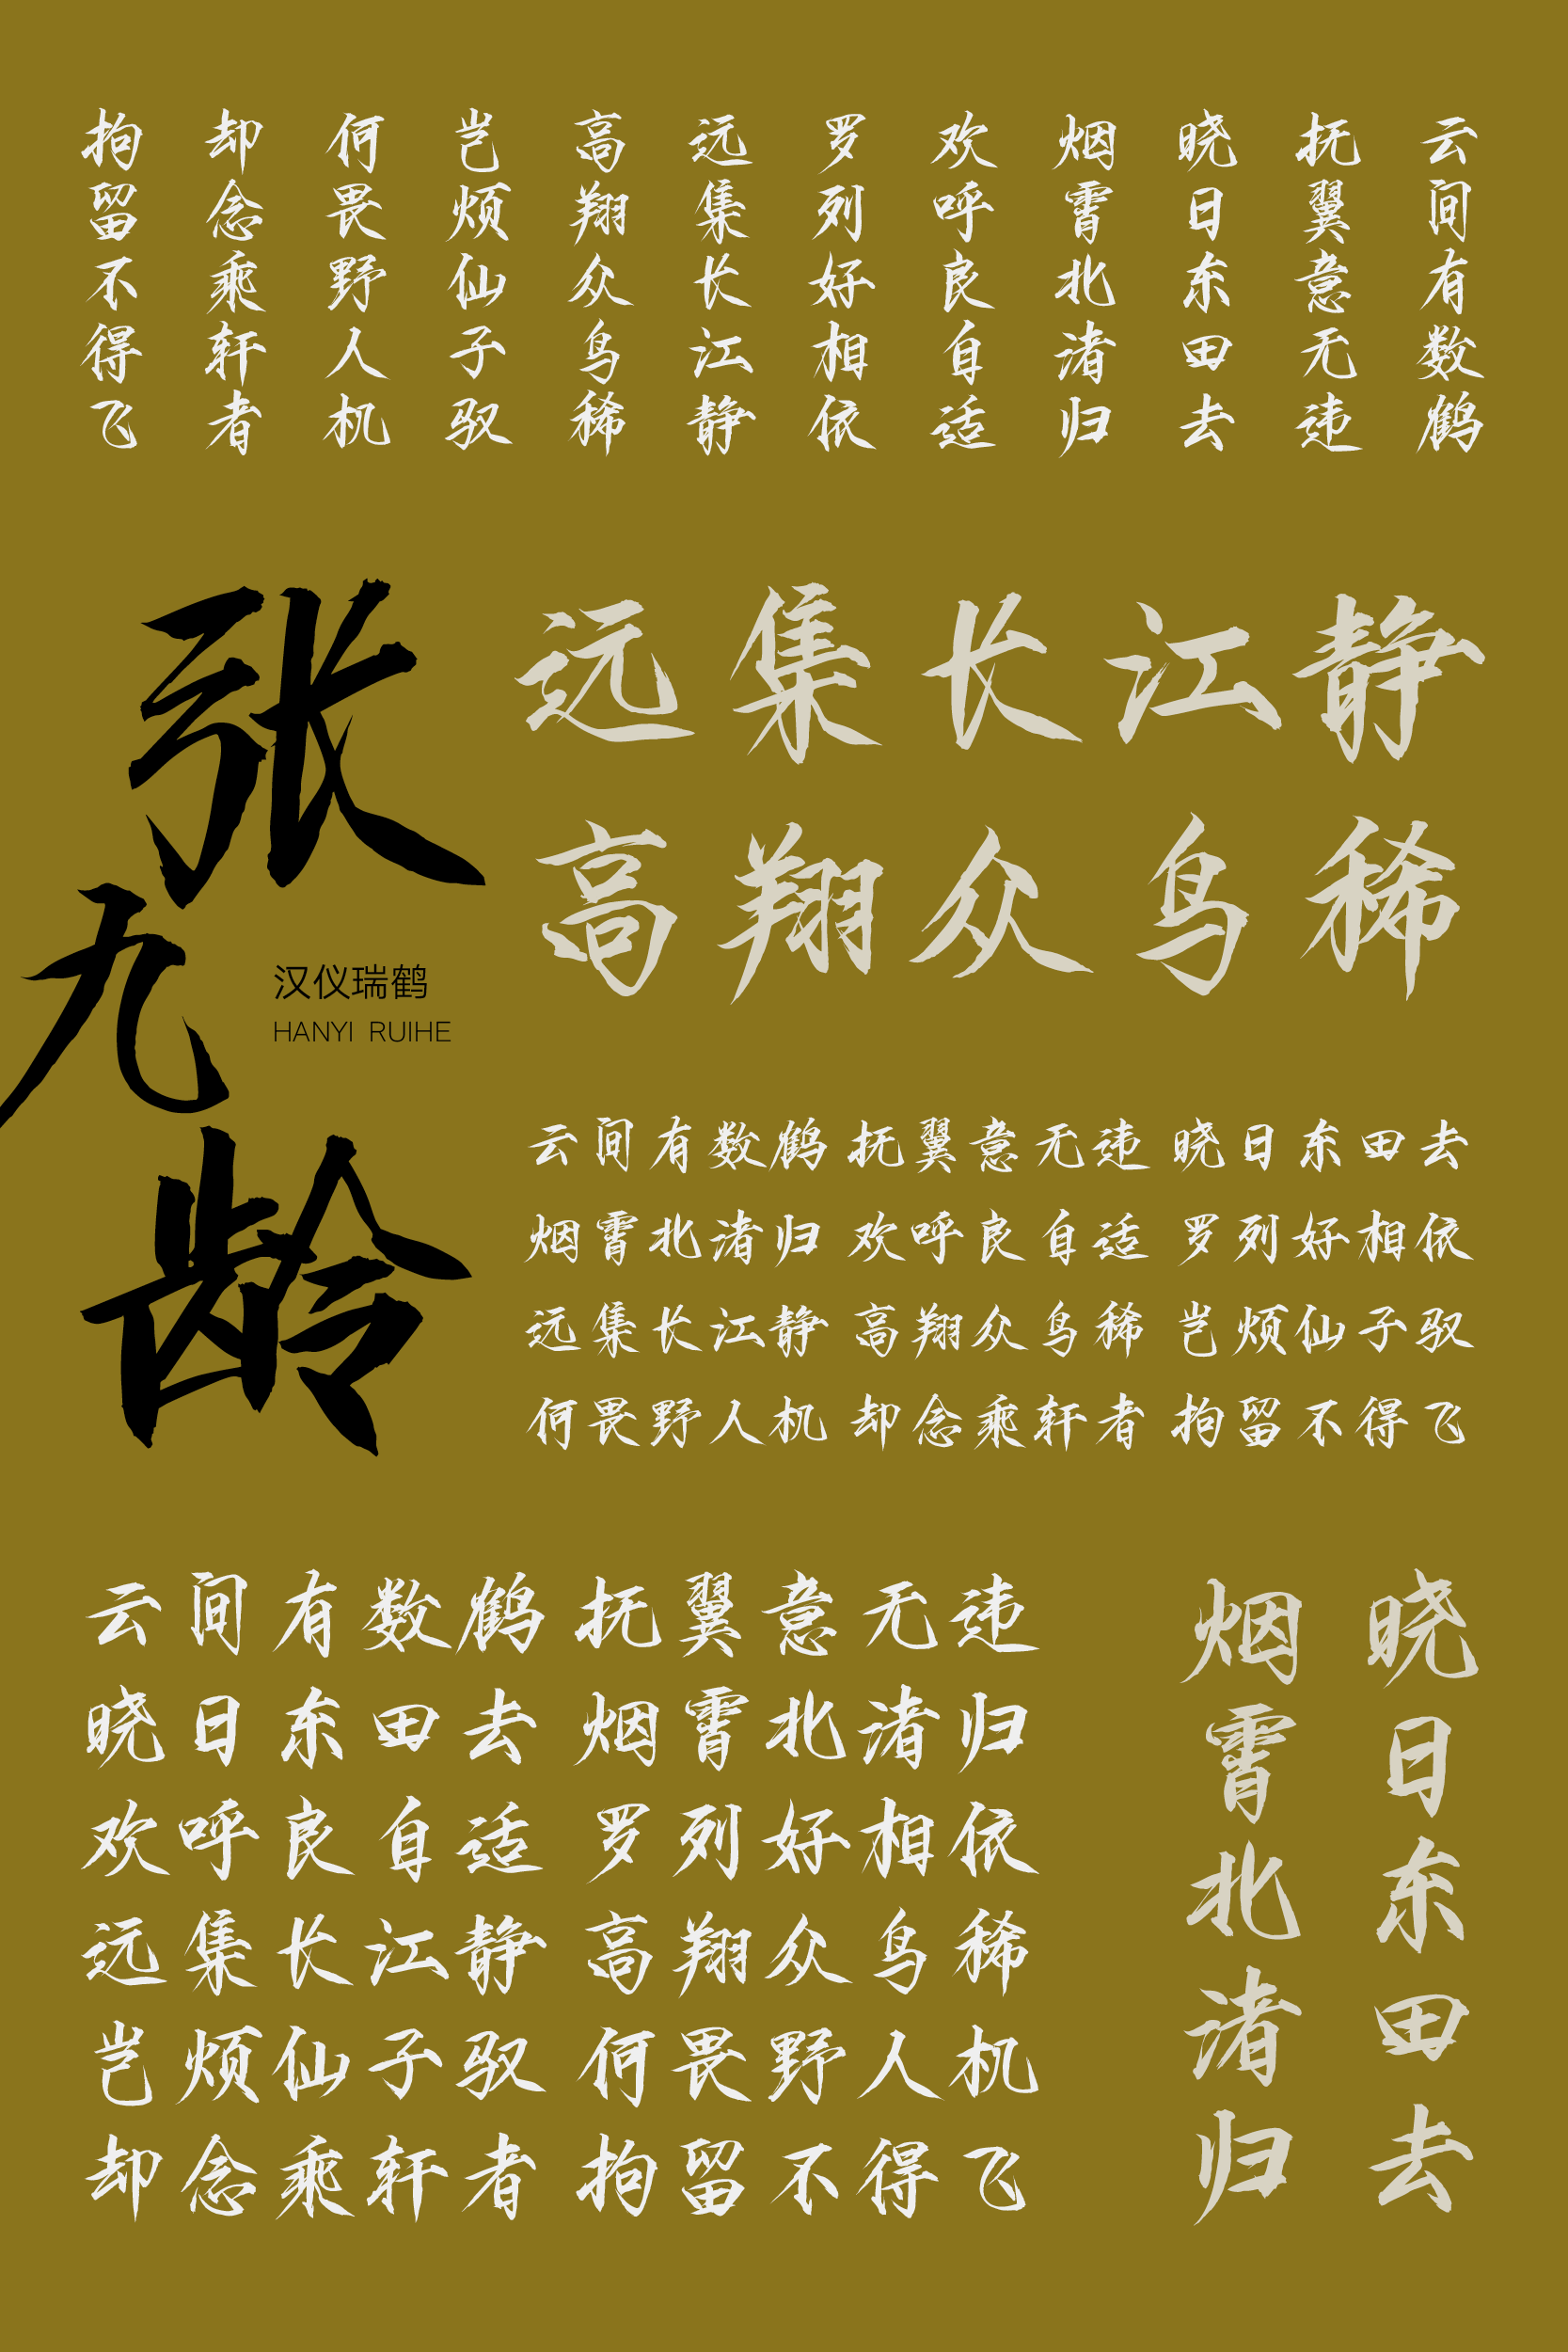 云间有数鹤
抚翼意无违
晓日东田去
烟霄北渚归
欢呼良自适
罗列好相依
远集长江静
高翔众鸟稀
岂烦仙子驭
何畏野人机
却念乘轩者
拘留不得飞
张九龄
汉仪瑞鹤
HANYI RUIHE
远集长江静
高翔众鸟稀
云间有数鹤 抚翼意无违 晓日东田去
烟霄北渚归 欢呼良自适 罗列好相依
远集长江静 高翔众鸟稀 岂烦仙子驭
何畏野人机 却念乘轩者 拘留不得飞
云间有数鹤 抚翼意无违
晓日东田去 烟霄北渚归
欢呼良自适 罗列好相依
远集长江静 高翔众鸟稀
岂烦仙子驭 何畏野人机
却念乘轩者 拘留不得飞
晓日东田去
烟霄北渚归